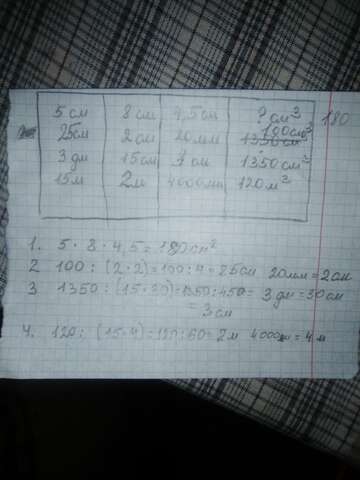 5 см 8 см 4,5 см ? см³ 180
25см 2 см 20мм 100см³ 1350 см³
3 дм 15см 3 см 1350 см³
15м 2м 4000мм 120м³
1. 5 · 8 · 4,5 = 180см³
2 100 : (2 · 2) = 100 : 4 = 25см 20мм = 2см
3 1350 : (15 · 30) = 1350 : 450 = 3 дм = 30 см
= 3 см
4. 120 : (15 · 4) = 120 : 60 = 2м 4000мм = 4 м